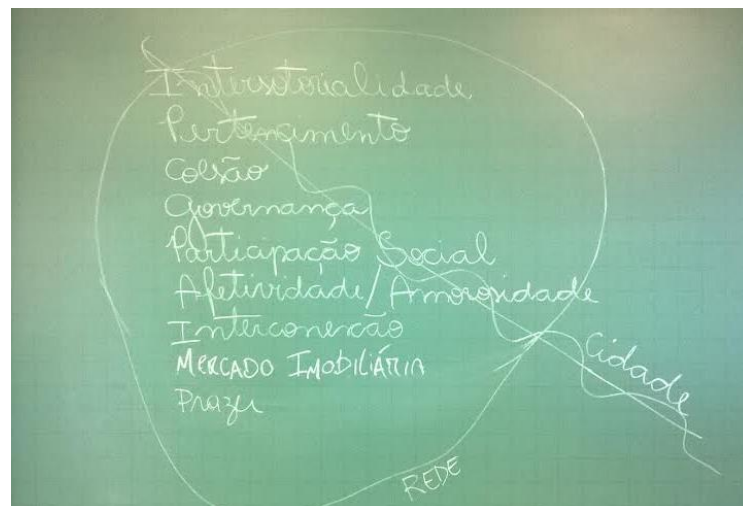 Intersetorialidade
Pertencimento
Coesão
Governança
Participação Social
Afetividade / Amorosidade
Interconexão
MERCADO IMOBILIÁRIA
Prazer
Cidade
REDE